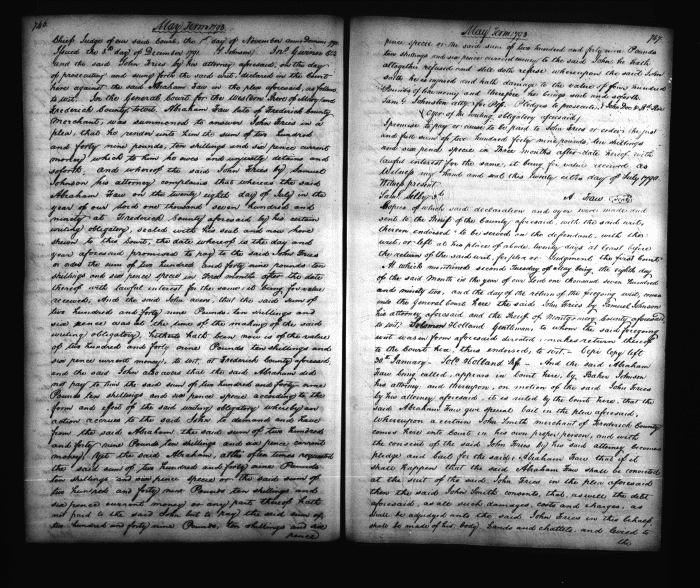 May Term 1793
Chief Judge of our said Court the 1st day of November anno Domini 1791
Issued the 3d day of December 1791
And the said John Fries by his attorney aforesaid, on the day
of prosecuting and suing forth the said writ, declared in the Court
here against the said Abraham Faw in the plea aforesaid, as follows
to wit. In the General Court for the Western Shore of Maryland
Frederick County to wit. Abraham Faw late of Frederick County
Merchant, was summoned to answer John Fries in a
plea, that he render unto him the sum of two hundred
and forty nine pounds, ten shillings and six pence current
money which to him he owes and unjustly detains and
soforth. and whereof the said John Fries by Samuel
Johnson his attorney complains that whereas the said
Abraham Faw on the twenty eighth day of July in the
year of our Lord one thousand seven hundred and
ninety at Frederick County aforesaid by his certain
writing obligatory, sealed with his seal and now here
shewn to this Court, the date whereof is the day and
year aforesaid promised to pay to the said John Fries
or order the sum of two hundred and forty nine pounds ten
shillings and six pence specie in three months after the date
thereof with lawful interest for the same, it being for value
received, And the said John avers, that the said sum of
two hundred and forty nine Pounds ten shillings and
six pence was at the time of the making of the said
writing obligatory, hitherto hath been and now is of the value
of two hundred and forty nine Pounds ten shillings and
six pence current money, to wit, at Frederick County aforesaid,
and the said John also avers that the said Abraham did
not pay to him the said sum of two hundred and forty nine
Pounds ten shillings and six pence specie according to the
form and effect of the said writing obligatory whereby an
action accrued to the said John to demand and have
from the said Abraham, the said sum of two hundred
and forty nine Pounds ten shillings and six pence current
money. Yet the said Abraham, altho often times requested
the said sum of two hundred and forty nine Pounds
ten shillings and six pence specie or the said sum of
two hundred and forty nine Pounds ten shillings and
six pence current money or any part thereof hath
not paid to the said John but to pay the said sum of
two hundred and forty nine Pounds, ten shillings and six
pence
May Term 1793
767.
pence specie or the said sum of two hundred and forty nine Pounds
ten shillings and six pence current money to the said John he hath
altogether refused and still doth refuse, whereupon the said John
saith he is injured and hath damage to the value of four hundred
Pounds of like money and therefore he brings suit and soforth
Saml Johnston atty for Plf. Pledges to prosecute, John Doe & Rd Roe
(Oyer of the writing obligatory aforesaid)
I promise to pay or cause to be paid to John Fries or order, the just
and full sum of two hundred forty nine pounds, ten shillings
and six pence specie in three months after date hereof with
lawful interest for the same, it being for value received as
Witness my hand and seal this twenty eighth day of July 1790.
Witness present
A. Faw (seal)
Copies of which said declaration and oyer were made and
sent to the Sheriff of the County aforesaid, with the said writ,
thereon endorsed "to be served on the defendant, with the
writ, or left at his place of abode twenty days at least before
the return of the said writ, for plea or Judgment the first Court"
At which mentioned second Tuesday of May being the eighth day
of the said month in the year of our Lord one thousand seven hundred
and ninety two, and the day of the return of the foregoing writ, comes
into the General Court here the said John Fries by Samuel Johnson
his attorney aforesaid and the Sheriff of Montgomery County aforesaid
to wit: Solomon Holland Gentleman, to whom the said foregoing
writ was in form aforesaid directed, makes return thereof
to the Court here, thus endorsed, to wit - Copy Copy left
30th January - Solo Holland Shff. And the said Abraham
Faw being called, appears in Court here by Baker Johnson
his attorney, and thereupon, on motion of the said John Fries
by his attorney aforesaid, it is ruled by the Court here, that the
said Abraham Faw give special bail in the plea aforesaid,
whereupon a certain John Smith merchant of Frederick County
comes here into Court in his own proper person, and with
the consent of the said John Fries by his said attorney becomes
pledge and bail for the said Abraham Faw that if it
shall happen that the said Abraham Faw shall be convicted
at the suit of the said John Fries in the plea aforesaid
then the said John Smith consents, that, as well the debt
aforesaid, as all such damages, costs and charges, as
shall be adjudged unto the said John Fries in this behalf,
shall be made of his, body, lands and chattels, and levied to
the